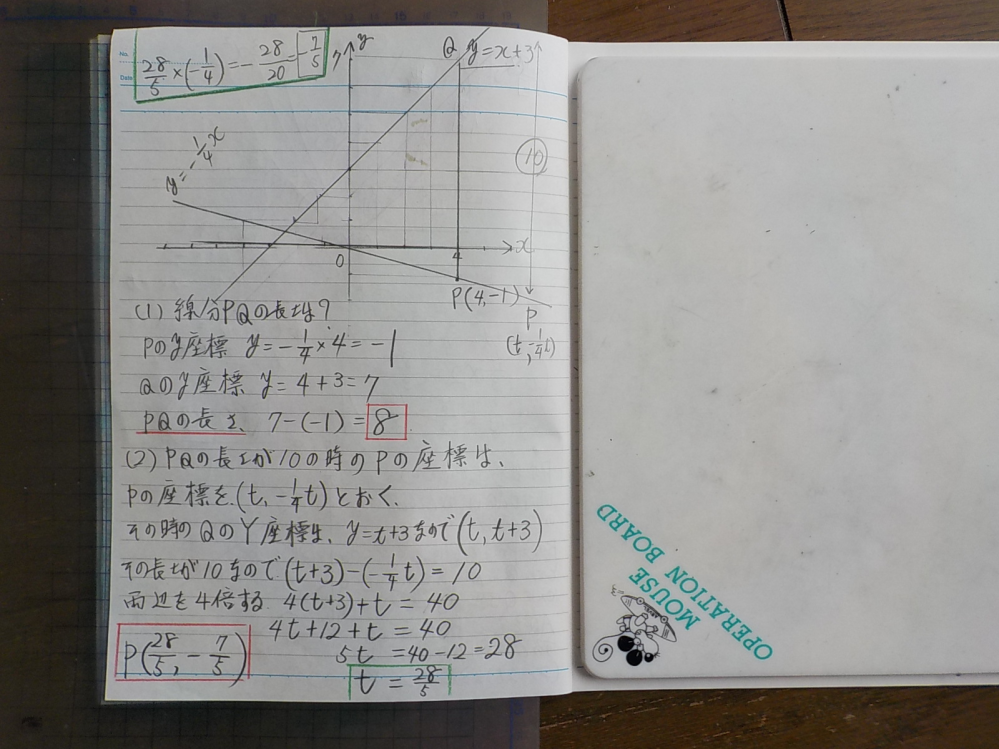 No.
Date
28/5 × (-1/4) = -28/20 = -7/5
7
y
Q y=x+3
y=-1/4x
10
x
0
4
P(4,-1)
P
(t,-1/4t)
(1) 線分PQの長さは?
Pのy座標 y=-1/4×4=-1
Qのy座標 y=4+3=7
PQの長さ、7-(-1)=8
(2) PQの長さが10の時のPの座標は、
Pの座標を(t,-1/4t)とおく、
その時のQのY座標は、y=t+3なので(t,t+3)
その長さが10なので(t+3)-(-1/4t)=10
両辺を4倍する 4(t+3)+t=40
4t+12+t=40
5t=40-12=28
t=28/5
P(28/5,-7/5)
MOUSE
OPERATION BOARD